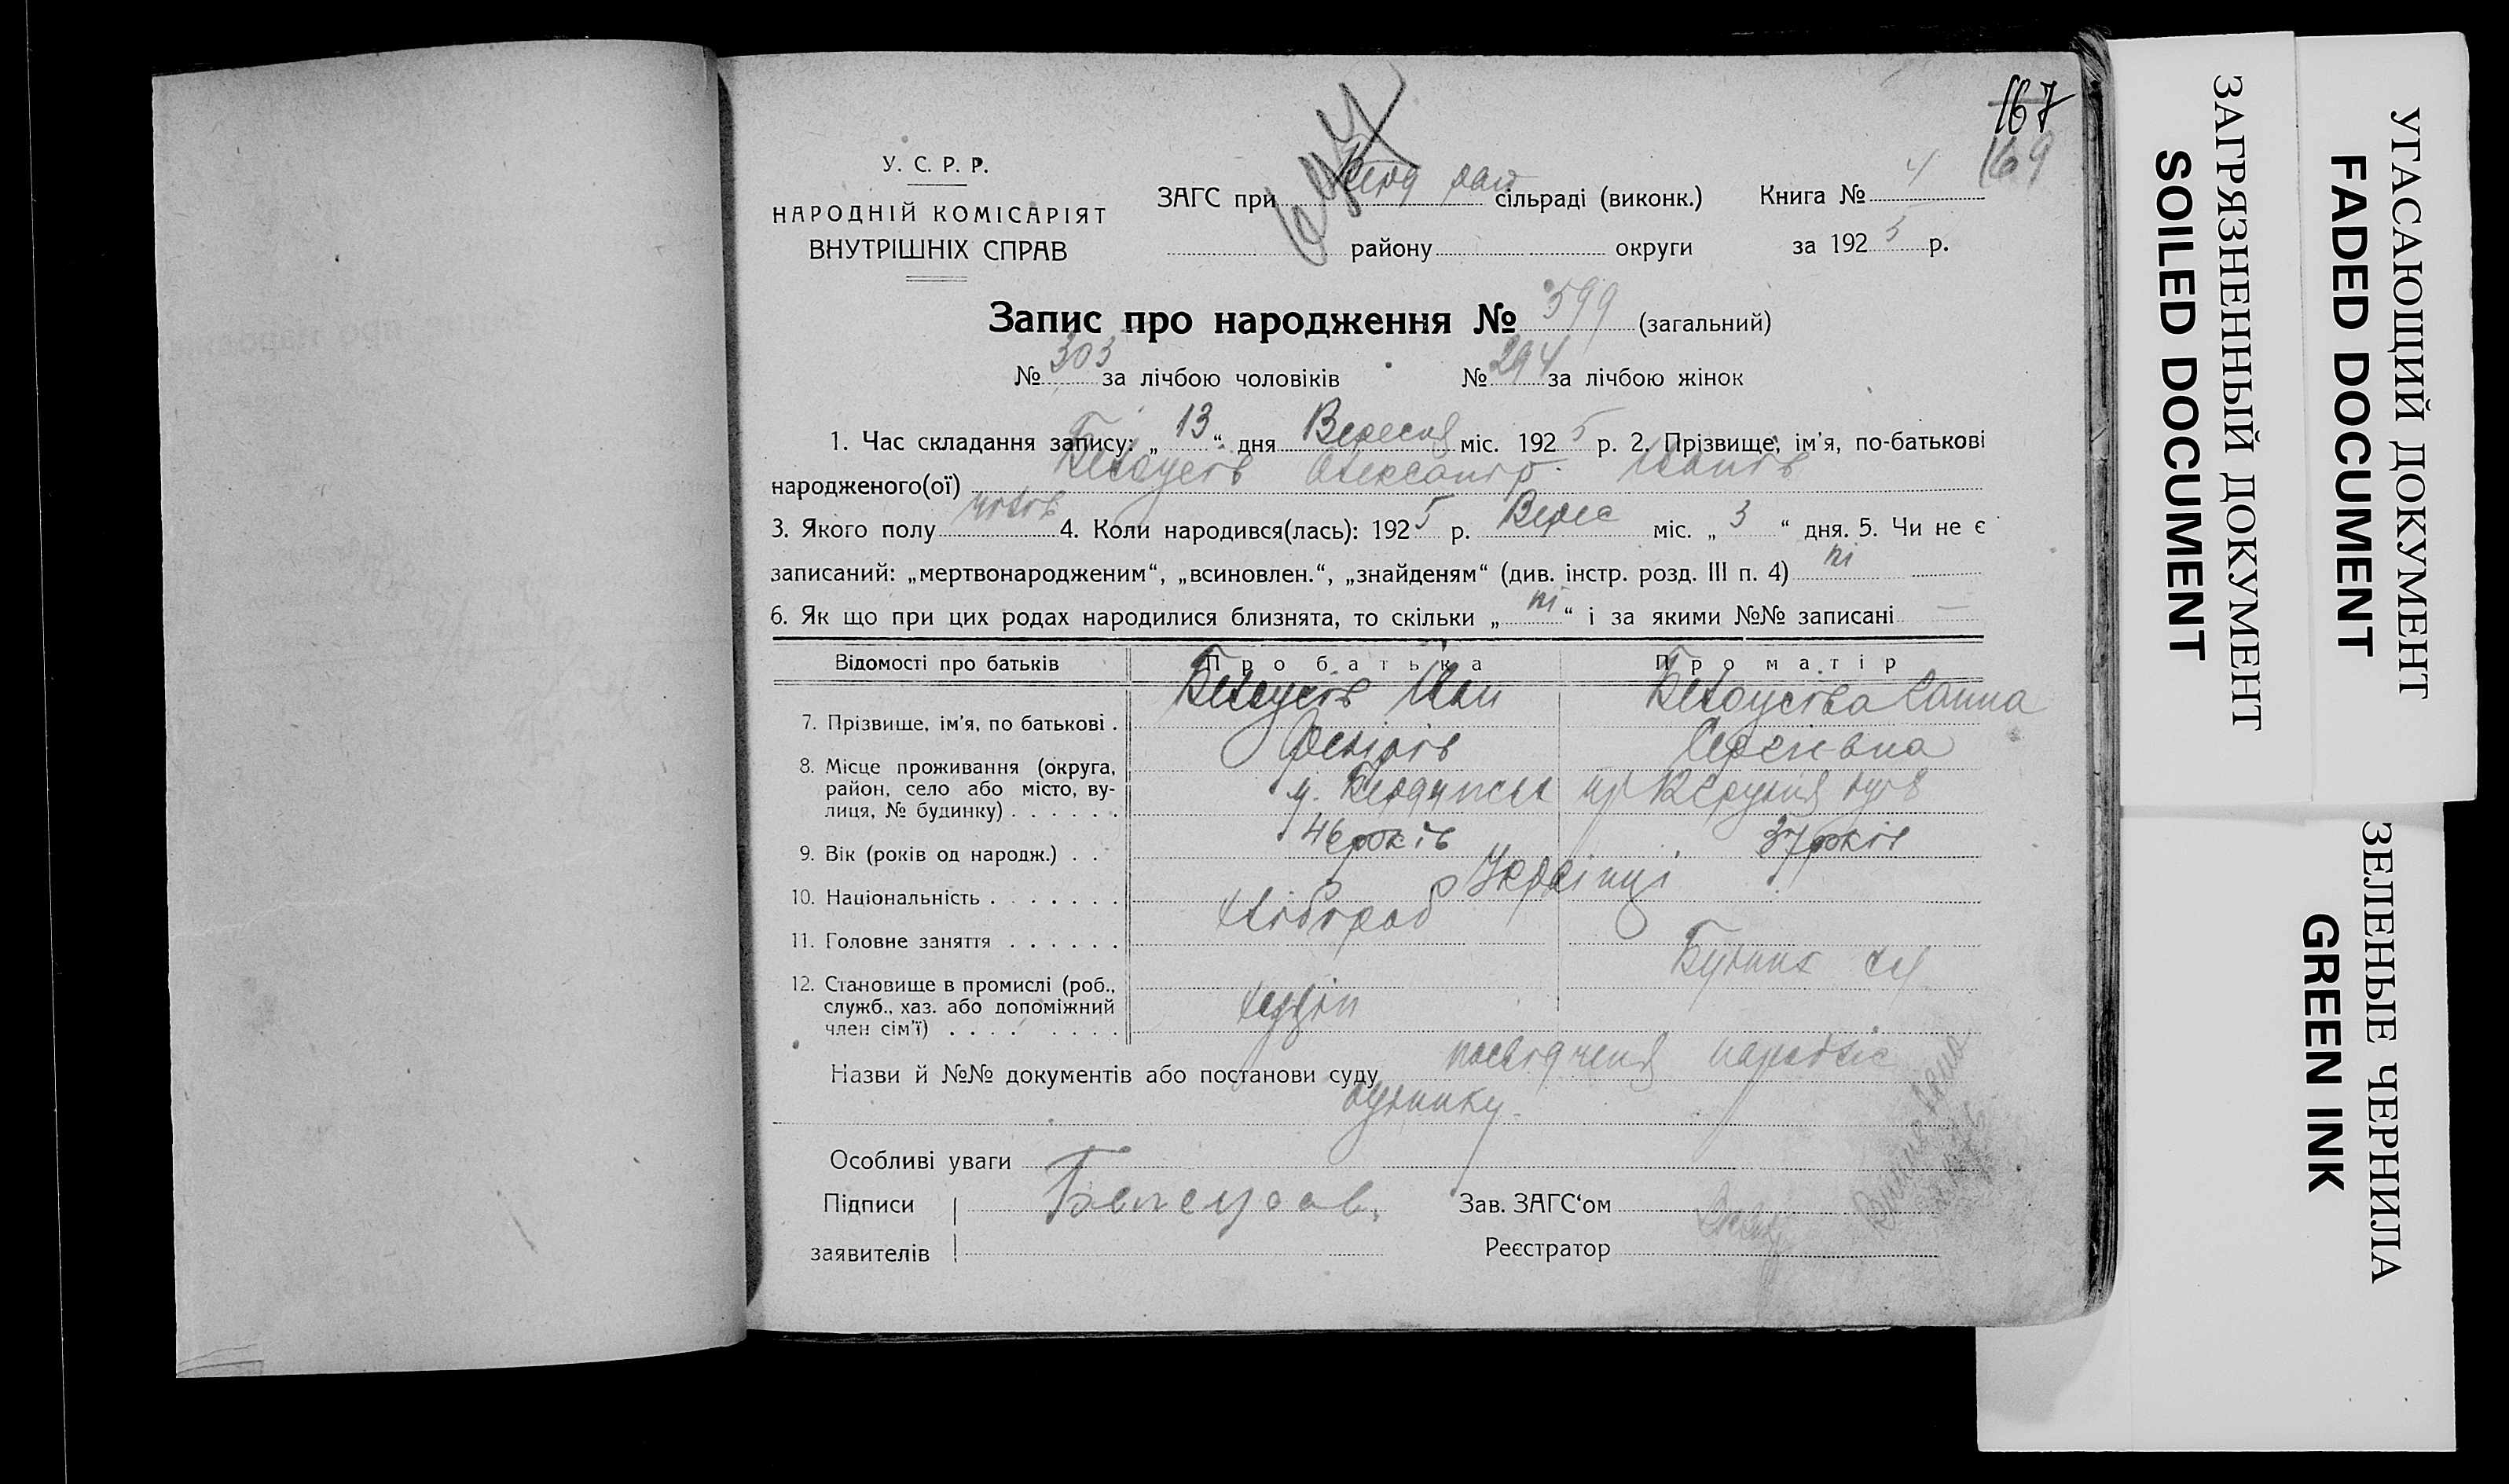 167
169
У. С. Р. Р.
НАРОДНІЙ КОМІСАРІЯТ
ВНУТРІШНІХ СПРАВ
ЗАГС при сільраді (виконк.)
району округи
Книга № 4
за 1925 р.
Запис про народження № 599 (загальний)
№ 303 за лічбою чоловіків № 294 за лічбою жінок
1. Час складання запису: „13“ дня Вересня міс. 1925 р. 2. Прізвище, ім'я, по-батькові
народженого(ої) Білоусів Олександр Іванів
3. Якого полу чолов 4. Коли народився(лась): 1925 р. Верес міс. „3“ дня. 5. Чи не є
записаний: „мертвонародженим“, „всиновлен.“, „знайденям“ (див. інстр. розд. III п. 4) ні
6. Як що при цих родах народилися близнята, то скільки „ні“ і за якими №№ записані —
Відомості про батьків Про батька Про матір
7. Прізвище, ім'я, по батькові . Білоусів Іван Білоусіва Ганна
Сергієвна
8. Місце проживання (округа,
район, село або місто, ву-
лиця, № будинку) . . . . . .
9. Вік (років од народж.) . . 46 років 37 років
10. Національність . . . . . . . Українці
11. Головне заняття . . . . . . хлібороб
12. Становище в промислі (роб.,
служб., хаз. або допоміжний
член сім'ї) . . . . . . . .
Назви й №№ документів або постанови суду посвідченя
будинку.
Особливі уваги
Підписи
заявителів
Зав. ЗАГС'ом
Реєстратор
ЗАГРЯЗНЕННЫЙ ДОКУМЕНТ
SOILED DOCUMENT
УГАСАЮЩИЙ ДОКУМЕНТ
FADED DOCUMENT
ЗЕЛЕНЫЕ ЧЕРНИЛА
GREEN INK